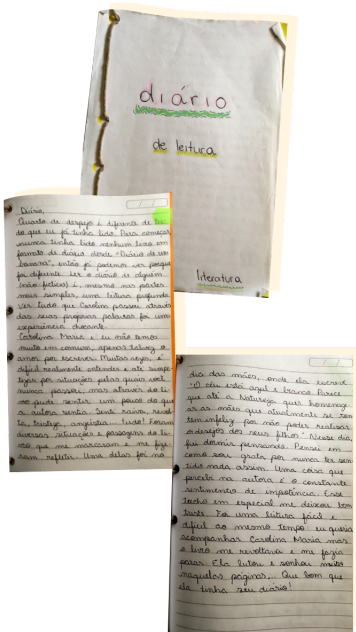 diário
de leitura
literatura
Diário,
Quarto de despejo é diferente de tu-
do que eu já tinha lido. Para começar,
nunca tinha lido nenhum livro em
formato de diário desde "Diário de um
banana", então já podemos ver porque
foi diferente. Ler o diário de alguém
(não fictício) é, mesmo nas partes
mais simples, uma leitura profunda.
Ver tudo que Carolina passou através
das suas próprias palavras foi uma
experiência chocante.
Carolina Maria e eu não temos
muito em comum, apenas talvez, o
amor por escrever. Muitas vezes, é
difícil realmente entender e até simpa-
tizar por situações pelas quais você
nunca passou, mas através do li-
vro pude sentir um pouco do que
a autora sentia. Senti raiva, revol-
ta, tristeza, angústia... tudo! Foram
diversas situações e passagens do li-
vro que me marcaram e me fize-
ram refletir. Uma delas foi no
dia das mães, onde ela escreve
"O céu está azul e branco. Parece
que até a Natureza quer homenage-
ar as mães que atualmente se sen-
tem infeliz por não poder realisar
os desejos de seus filhos." Nesse dia,
fui dormir pensando. Pensei em
como sou grata por nunca ter sen-
tido nada assim. Uma coisa que
percebi na autora é o constante
sentimento de impotência. Esse
trecho em especial me deixou bem
triste. Foi uma leitura fácil e
difícil ao mesmo tempo: eu queria
acompanhar Carolina Maria mas
o livro me revoltava e me fazia
parar. Ela lutou e sonhou muito
naquelas páginas... Que bom que
ela tinha seu diário!